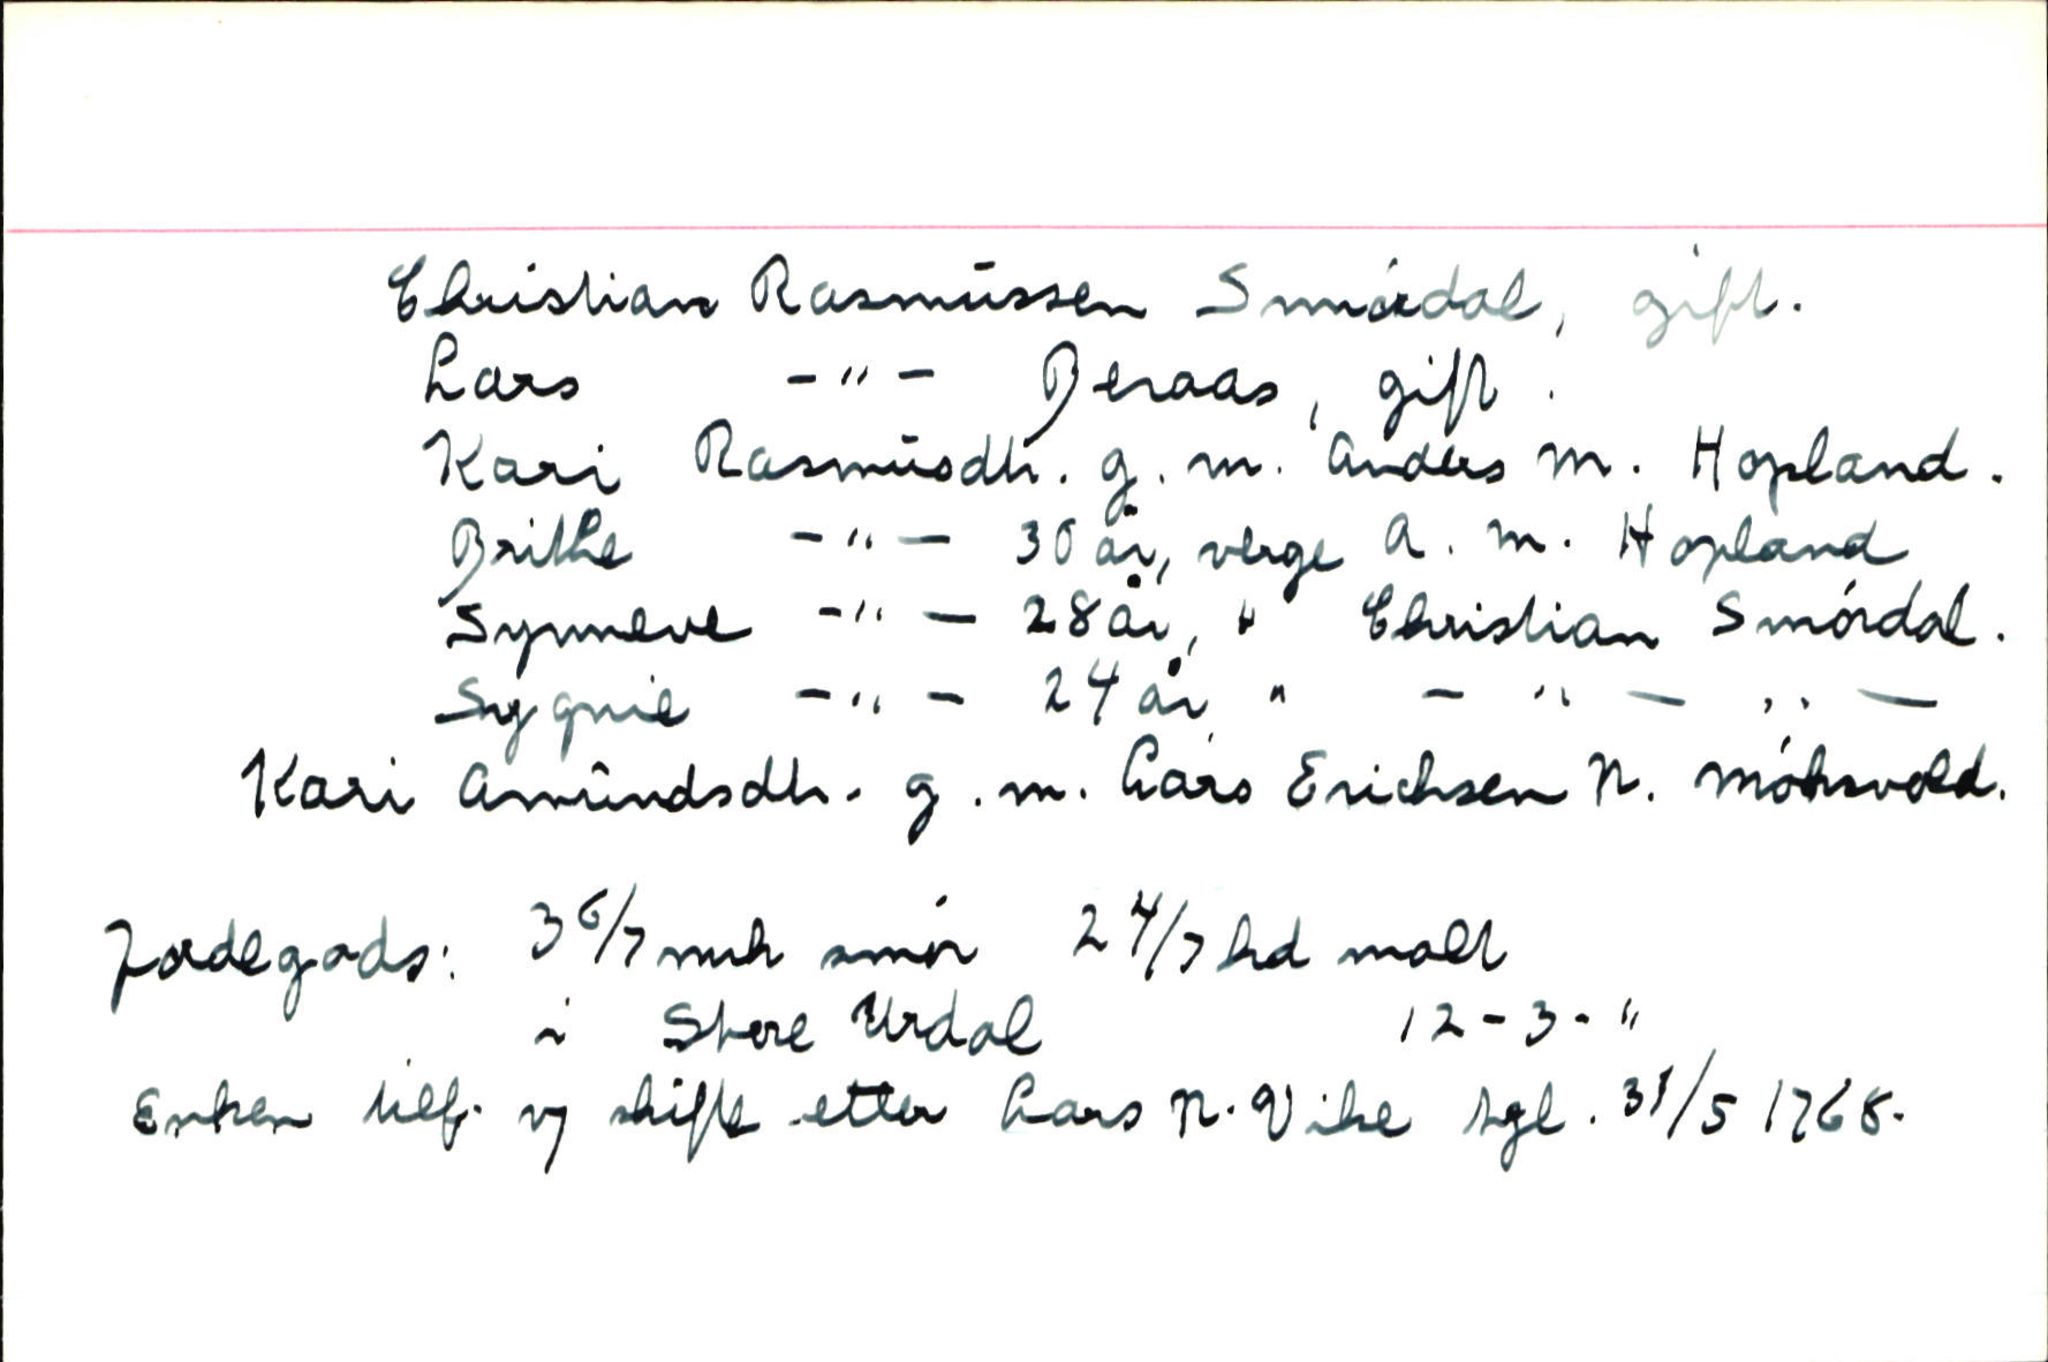 Christian Rasmussen Smørdal, gift.
Lars -"- Beraas, gift.
Kari Rasmusdtr. g. m. Anders M. Hopland.
Brithe -"- 30 år, verge A. M. Hopland
Synneve -"- 28 år, " Christian Smørdal.
Sygnie -"- 24 år " -"- -"-
Kari Amundsdtr. g. m. Lars Erichsen N. Møhsvold.
Jordegods: 3 6/7 mrk smør 2 4/7 hd malt
i Store Urdal 12-3-"
Enken tilf. v/ skifte etter Lars N. Vike tgl. 31/5 1768.